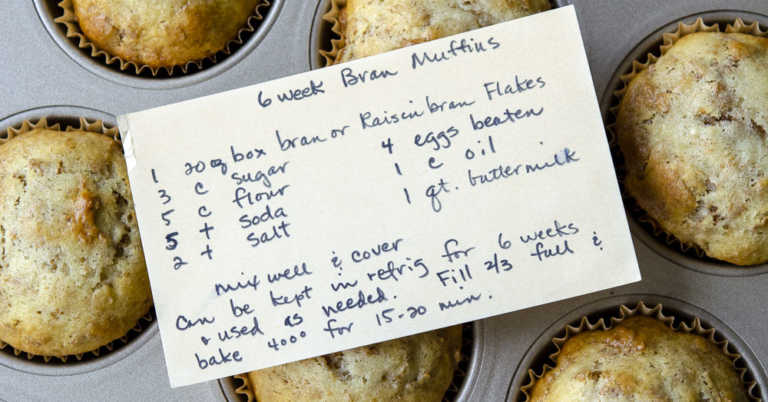 6 week Bran Muffins
1 20 oz box bran or Raisin bran Flakes
3 c sugar 4 eggs beaten
5 c flour 1 c oil
5 t soda 1 qt. buttermilk
2 t salt
mix well & cover
can be kept in refrig for 6 weeks
& used as needed. Fill 2/3 full &
bake 400° for 15-20 min.